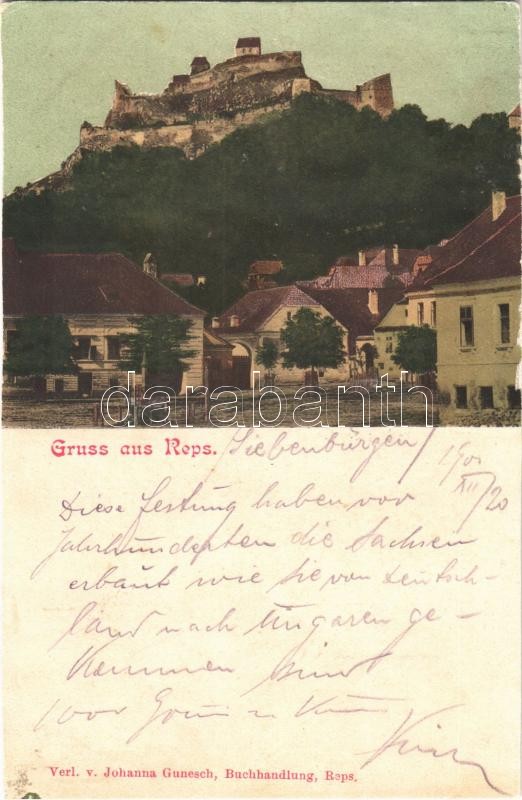 darabanth
Gruss aus Reps. Siebenbürgen
190
XII/20
Diese Festung haben vor
Jahrhunderten die Sachsen
erbaut wie sie von Deutsch-
land nach Ungaren ge-
kommen sind
1000
Verl. v. Johanna Gunesch, Buchhandlung, Reps.